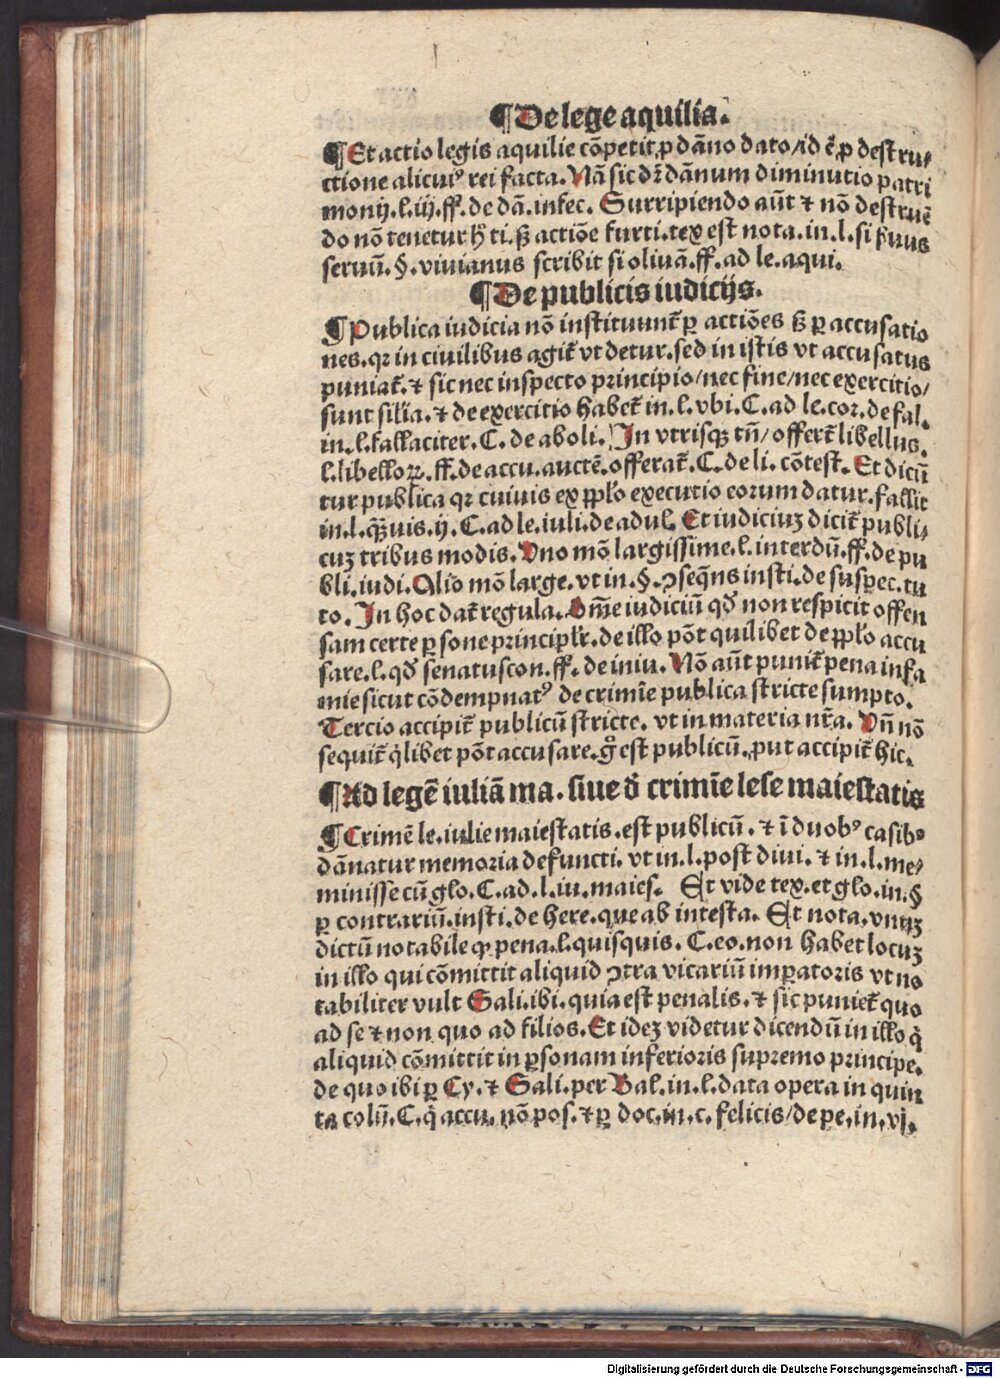 ¶De lege aquilia.
¶Et actio legis aquilie cõpetit ꝓ dãno dato/id ẽ ꝓ destru⸗
ctione alicuiꝰ rei facta. Nã sic dr̃ dãnum diminutio patri
monij. l. iij. ff. de dã. infec. Surripiendo aũt ⁊ nõ destruẽ
do nõ tenetur h̃ ti. sꝫ actiõe furti. tex est nota. in. l. si s̃uus
seruũ. §. vivianus scribit si oliuã. ff. ad le. aqui.
¶De publicis iudicijs.
¶Publica iudicia nõ instituunt̃ ꝑ actiões sꝫ ꝑ accusatio
nes. qꝛ in ciuilibus agit̃ vt detur. sed in istis vt accusatus
puniat̃. ⁊ sic nec inspecto principio/nec fine/nec exercitio/
sunt silĩa. ⁊ de exercitio habet̃ in. l. vbi. C. ad le. cor. de fal.
in. l. fallaciter. C. de aboli. In vtrisqꝫ tñ/ offert̃ libellus.
l. libelloꝝ. ff. de accu. auctẽ. offerat̃. C. de li. cõtest. Et dicũ
tur publica qꝛ cuiuis ex ppl̃o executio eorum datur. fallit
in. l. q̃ꝫuis. ij. C. ad le. iuli. de adul. Et iudiciuꝫ dicit̃ publi⸗
cuꝫ tribus modis. Uno mõ largissime. l. interdũ. ff. de pu
bli. iudi. Alio mõ large. vt in. §. ꝯseq̃ns insti. de suspec. tu
to. In hoc dat̃ regula. Om̃e iudiciũ qd̃ non respicit offen
sam certe ꝑsone principlr̃. de illo põt quilibet de ppl̃o accu
sare. l. qd̃ senatuscon. ff. de iniu. Nõ aũt punit̃ pena infa
mie sicut cõdempnatꝰ de crimĩe publica stricte sumpto.
Tercio accipit̃ publicũ stricte. vt in materia nr̃a. Uñ nõ
sequit̃ q̃libet põt accusare. g̊ est publicũ. ꝓut accipit̃ hic.
¶Ad legẽ iuliã ma. siue d̃ crimĩe lese maiestatis
¶Crimẽ le. iulie maiestatis. est publicũ. ⁊ ĩ duobꝰ casibꝰ
dãnatur memoria defuncti. vt in. l. post diui. ⁊ in. l. me⸗
minisse cũ glo. C. ad. l. iu. maies. Et vide tex. et glo. in. §
ꝑ contrariũ. insti. de here. que ab intesta. Et nota. vnuꝫ
dictũ notabile ꝙ pena. l. quisquis. C. eo. non habet locuꝫ
in illo qui cõmittit aliquid ꝯtra vicariũ imꝑatoris vt no
tabiliter vult Sali. ibi. quia est penalis. ⁊ sic puniet̃ quo
ad se ⁊ non quo ad filios. Et ideꝫ videtur dicendũ in illo q̃
aliquid cõmittit in ꝑsonam inferioris supremo principe.
de quo ibi ꝑ Cy. ⁊ Sali. per Bal. in. l. data opera in quin
ta colũ. C. q̃ accu. nõ pos. ⁊ ꝑ doc. in. c. felicis/de pe. in. vj.
Digitalisierung gefördert durch die Deutsche Forschungsgemeinschaft - DFG